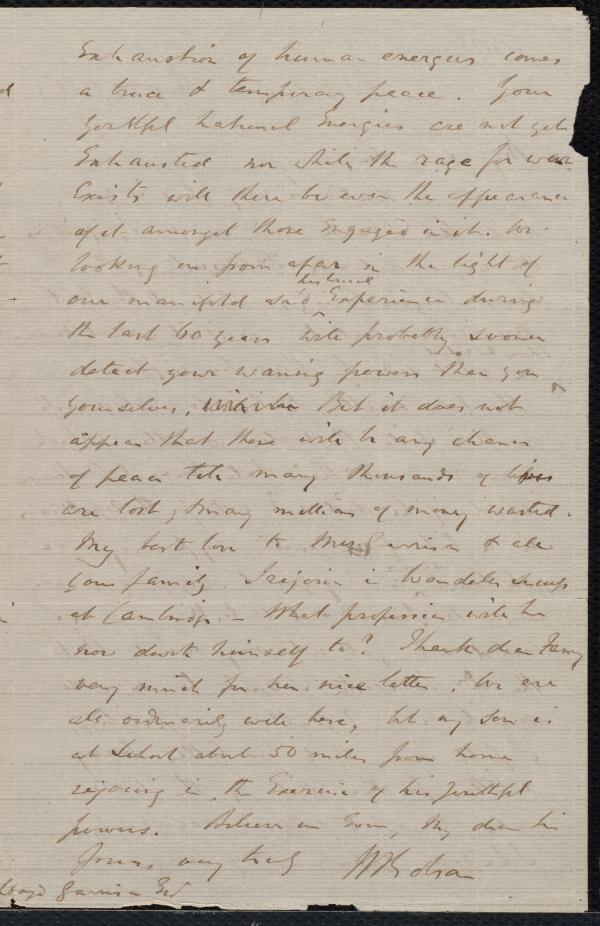 Exhaustion of human energies comes
a truce & temporary peace. Your
youthful national Energies are not yet
Exhausted nor while the rage for war
Exists will there be even the appearance
of it amongst those Engaged in it. We
looking on from afar in the light of
our manifold sad historical Experience during
the last 60 years will probably sooner
detect your waning powers than you
yourselves, But it does not
appear that there will be any chance
of peace till many thousands of lives
are lost, & many millions of money wasted.
My best love to Mrs Garrison & all
your family. I rejoice in Wendells success
at Cambridge - What profession will he
now devote himself to? Thank dear Fanny
very much for her nice letter. We are
all ordinarily well here, but my son is
at School about 50 miles from home
rejoicing in the Exercise of his youthful
powers. Believe me Ever, My dear Sir
Yours, very truly
Lloyd Garrison Esq